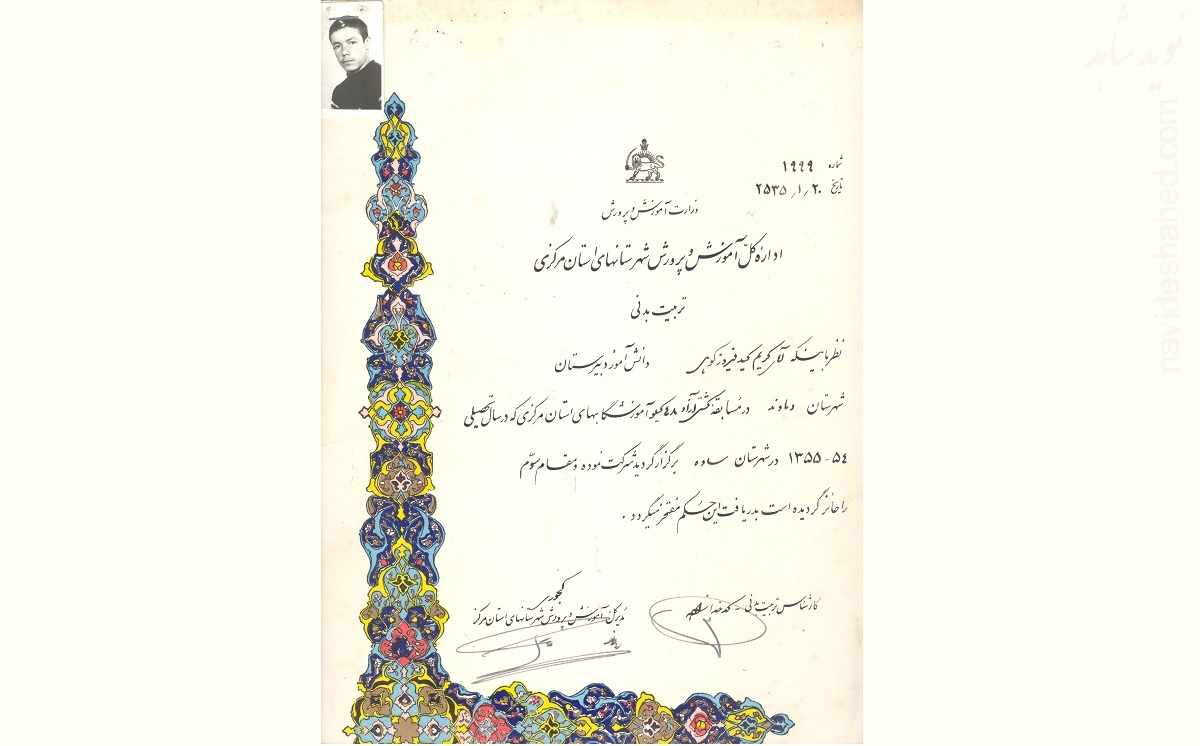 نوید شاهد
navideshahed.com
شماره ۱۹۹۹
تاریخ ۲۵۳۵/۱/۲۰
وزارت آموزش و پرورش
ادارهٔ کلّ آموزش و پرورش شهرستانهای استان مرکزی
تربیت بدنی
نظر باینکه آقای کریم کید فیروزکوهی دانش آموز دبیرستان
شهرستان دماوند در مسابقه کشتی آزاد ۴۸ کیلو آموزشگاههای استان مرکزی که در سال تحصیلی
۵۴-۱۳۵۵ در شهرستان ساوه برگزار گردید شرکت نموده و مقام سوّم
را حائز گردیده است بدریافت این حُکم مفتخر میگردد .
کارشناس تربیت بدنی - کدخدا
گنجوری
مدیر کل آموزش و پرورش شهرستانهای استان مرکز